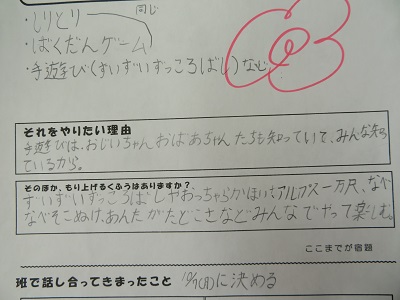 ・しりとり
同じ
・ばくだんゲーム
・手遊び(ずいずいずっころばし)など
それをやりたい理由
手遊びは、おじいちゃんおばあちゃんたちも知っていて、みんな知
ているから。
そのほか、もり上げるくふうはありますか?
ずいずいずっころばしやおっちゃらかほいさアルプス一万尺、なべ
なべそこぬけ、あんたがたどこさなどみんなでやって楽しむ。
ここまでが宿題
班で話し合ってきまったこと
に決める